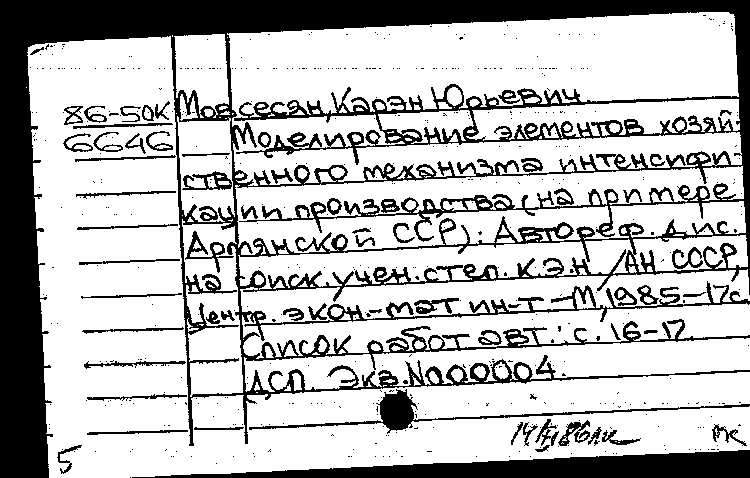 86-50К Мовсесян, Карэн Юрьевич.
6646 Моделирование элементов хозяй-
ственного механизма интенсифи-
кации производства (на примере
Армянской ССР): Автореф. дис.
на соиск. учен. степ. к.э.н. / АН СССР,
Центр. экон.-мат. ин-т. - М., 1985. - 17 с.
Список работ авт.: с. 16-17.
ДСП. Экз. N000004.
5